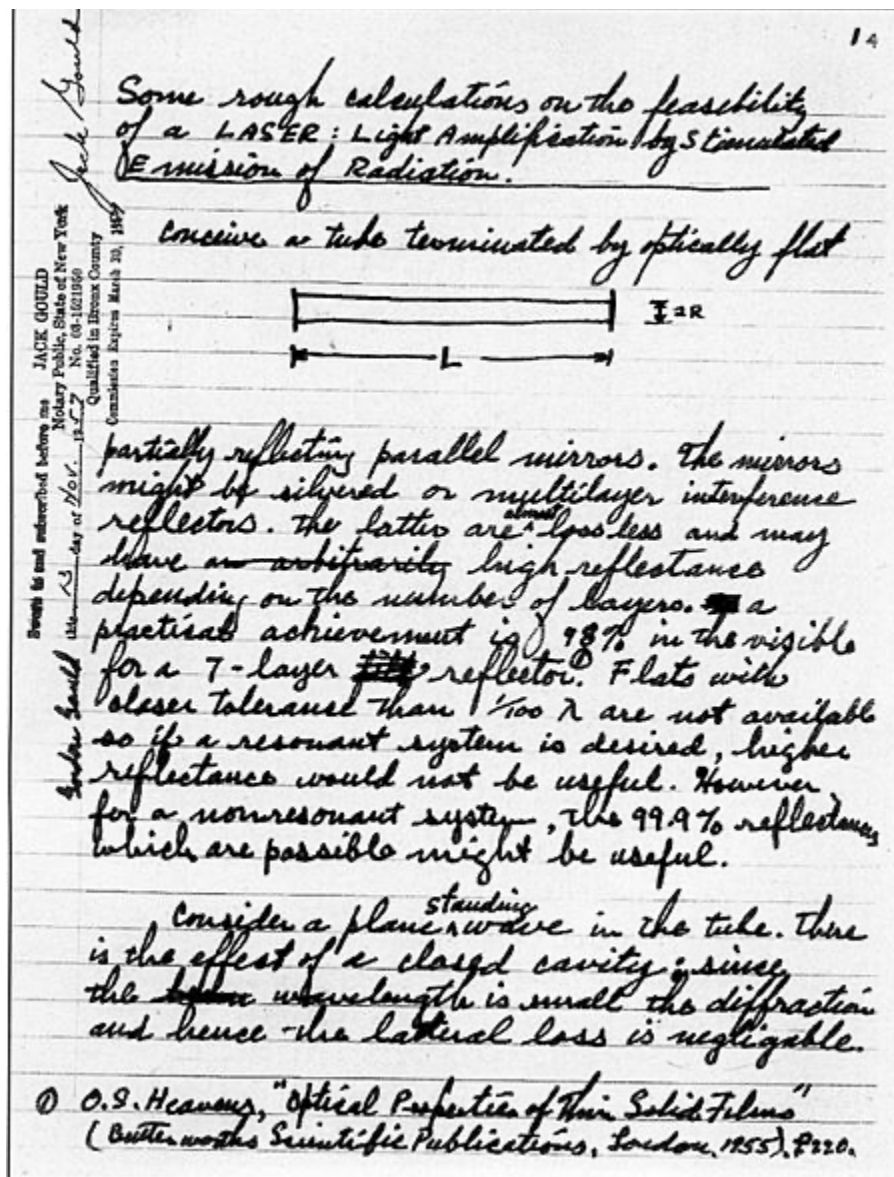 14
Some rough calculations on the feasibility
of a LASER: Light Amplification by Stimulated
Emission of Radiation.
conceive a tube terminated by optically flat
2R
L
partially reflecting parallel mirrors. The mirrors
might be silvered or multilayer interference
reflectors. The latter are almost lossless and may
have an arbitrarily high reflectance
depending on the number of layers. a
practical achievement is 98% in the visible
for a 7-layer reflector.① Flats with
closer tolerance than 1/100 λ are not available
so if a resonant system is desired, higher
reflectance would not be useful. However
for a nonresonant system, the 99.9% reflectances
which are possible might be useful.
Consider a plane standing wave in the tube. There
is the effect of a closed cavity; since
the wavelength is small the diffraction
and hence the lateral loss is negligable.
① O.S. Heavens, "Optical Properties of Thin Solid Films"
(Butterworths Scientific Publications, London, 1955), P220.
Sworn to and subscribed before me
this 13 day of Nov. 1957
JACK GOULD
Notary Public, State of New York
No. 03-1521950
Qualified in Bronx County
Commission Expires March 30, 1959
Jack Gould
Gordon Gould